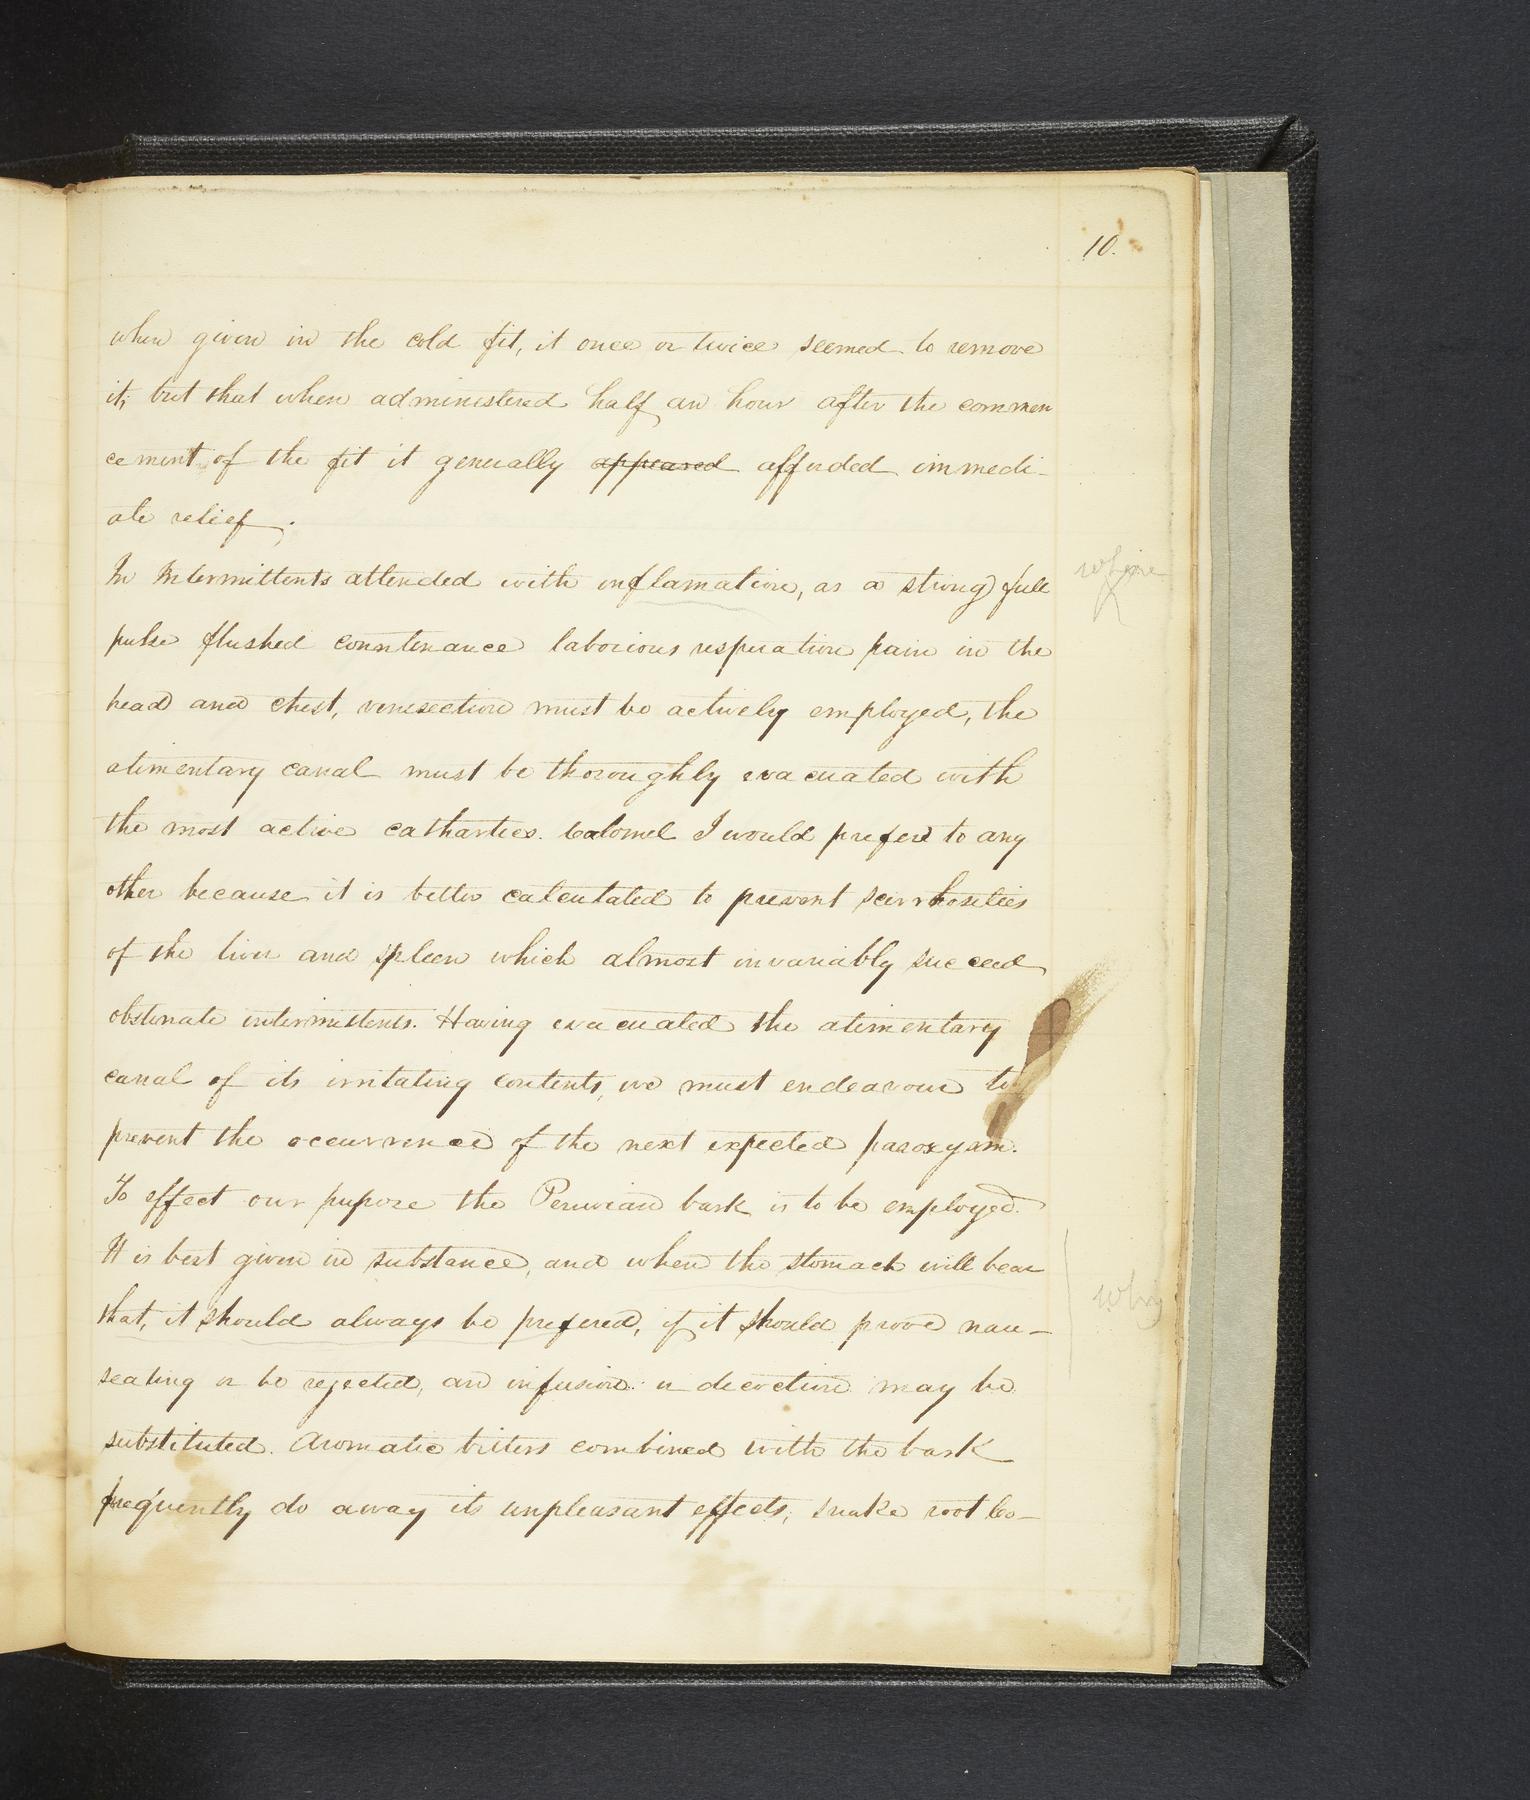 10.
when given in the cold fit, it once or twice seemed to remove
it; but that when administered half an hour after the commen
cement of the fit it generally appeared afforded immedi-
ate relief.
In Intermittents attended with inflamation, as a strong full
pulse flushed countenance laborious respiration pain in the
head and chest, venesection must be actively employed, the
alimentary canal must be thoroughly evacuated with
the most active cathartics. Calomel I would prefer to any
other because it is better calculated to prevent scirrhosities
of the liver and spleen which almost invariably succeed
obstinate intermittents. Having evacuated the alimentary
canal of its irritating contents, we must endeavour to
prevent the occurrence of the next expected paroxysm.
To effect our pupose the Peruvian bark is to be employed.
It is best given in substance, and when the stomach will bear
that, it should always be prefered, if it should prove nau-
seating or be rejected, an infusion or decoction may be
substituted. Aromatic bitters combined with the bark
frequently do away its unpleasant effects; snake root co-
why